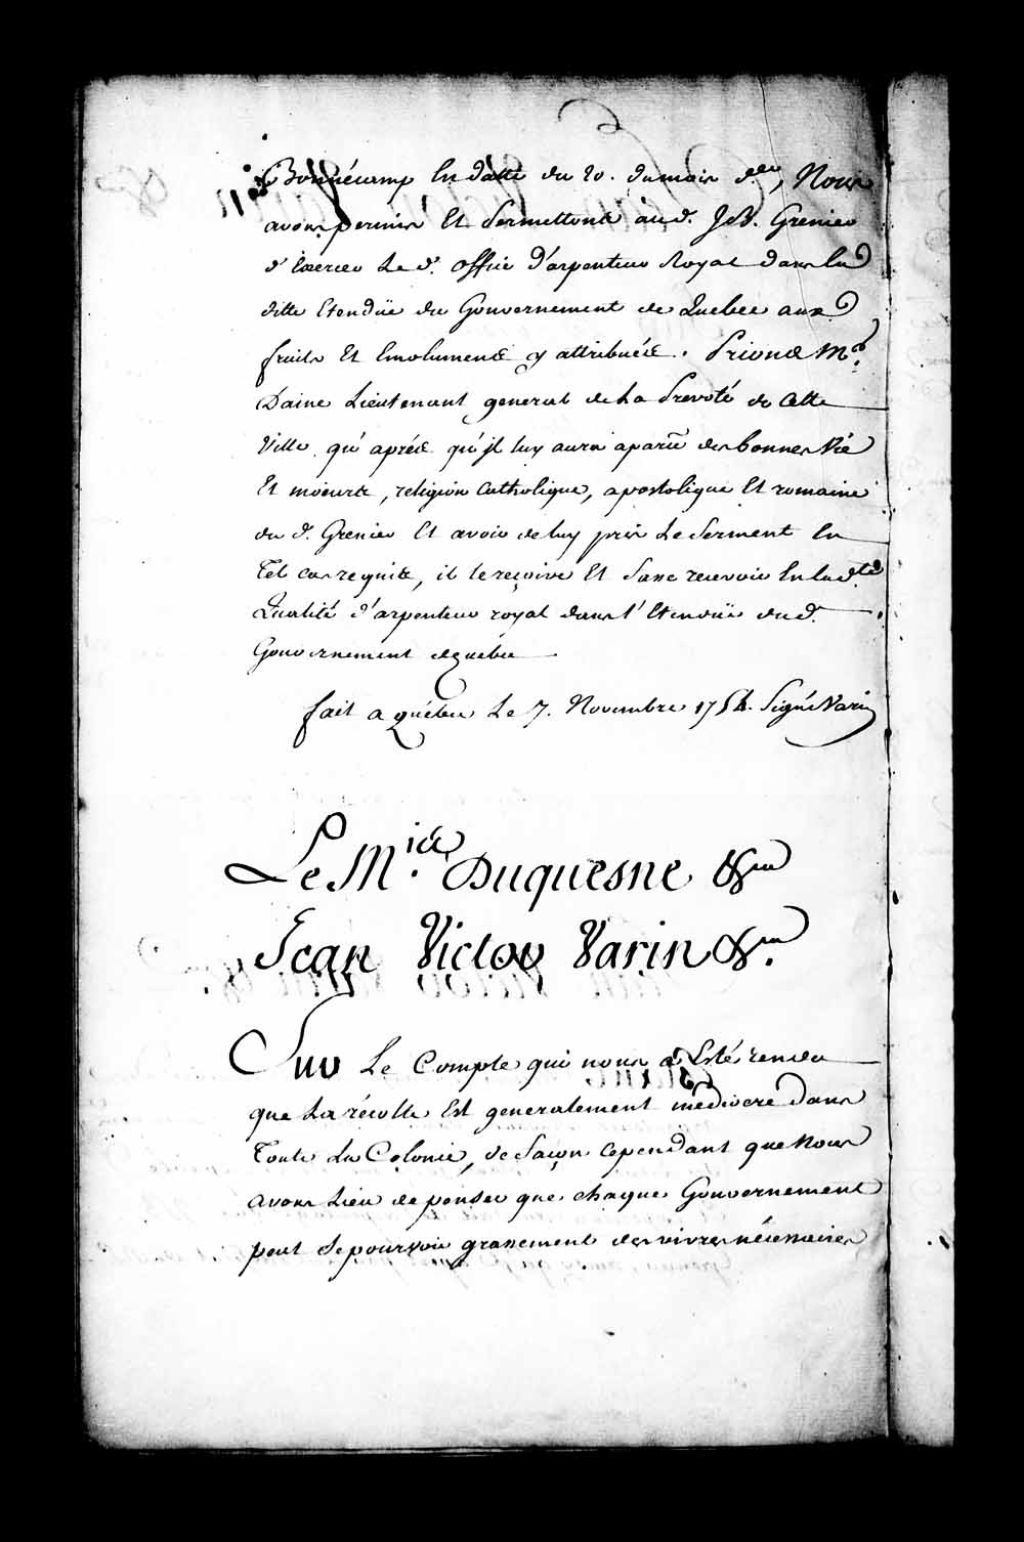 Bonnécamp En datte du 20. du mois der., Nous
avons permis Et Permettons aud. J. B. Grenier
d'Exercer Le d. office d'arpenteur Royal dans lad
ditte Etenduë du Gouvernement de Quebec aux
fruits Et Emoluments y attribuées. Prions Mr.
Daine Lieutenant general de La Prevoté de Cette
Ville qu'aprés qu'jl luy aura aparu des bonnes Vie
Et moeurs, religion Catholique, apostolique Et romaine
du d. Grenier Et avoir de luy pris Le Serment En
Tel cas requis, il le reçoive Et fasse recevoir En lad.te
Qualité d'arpenteur royal dans l'Etenduë dud.
Gouvernement de quebec
fait a québec Le 7. Novembre 1754. Signé Varin
Le M.is Duquesne &ra
Jean Victor Varin &ra.
Sur Le Compte qui nous a Esté rendu
que La récolte Est generalement médiocre dans
Toute La Colonie, de façon Cependant que Nous
avons Lieu de penser que chaque Gouvernement
peut Se pourvoir grassement des vivres nécessaires